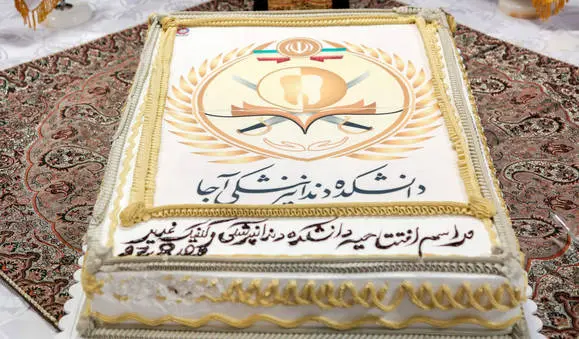 دانشکده دندانپزشکی آجا
مراسم افتتاحیه دانشکده دندانپزشکی و کلینیک غدیر